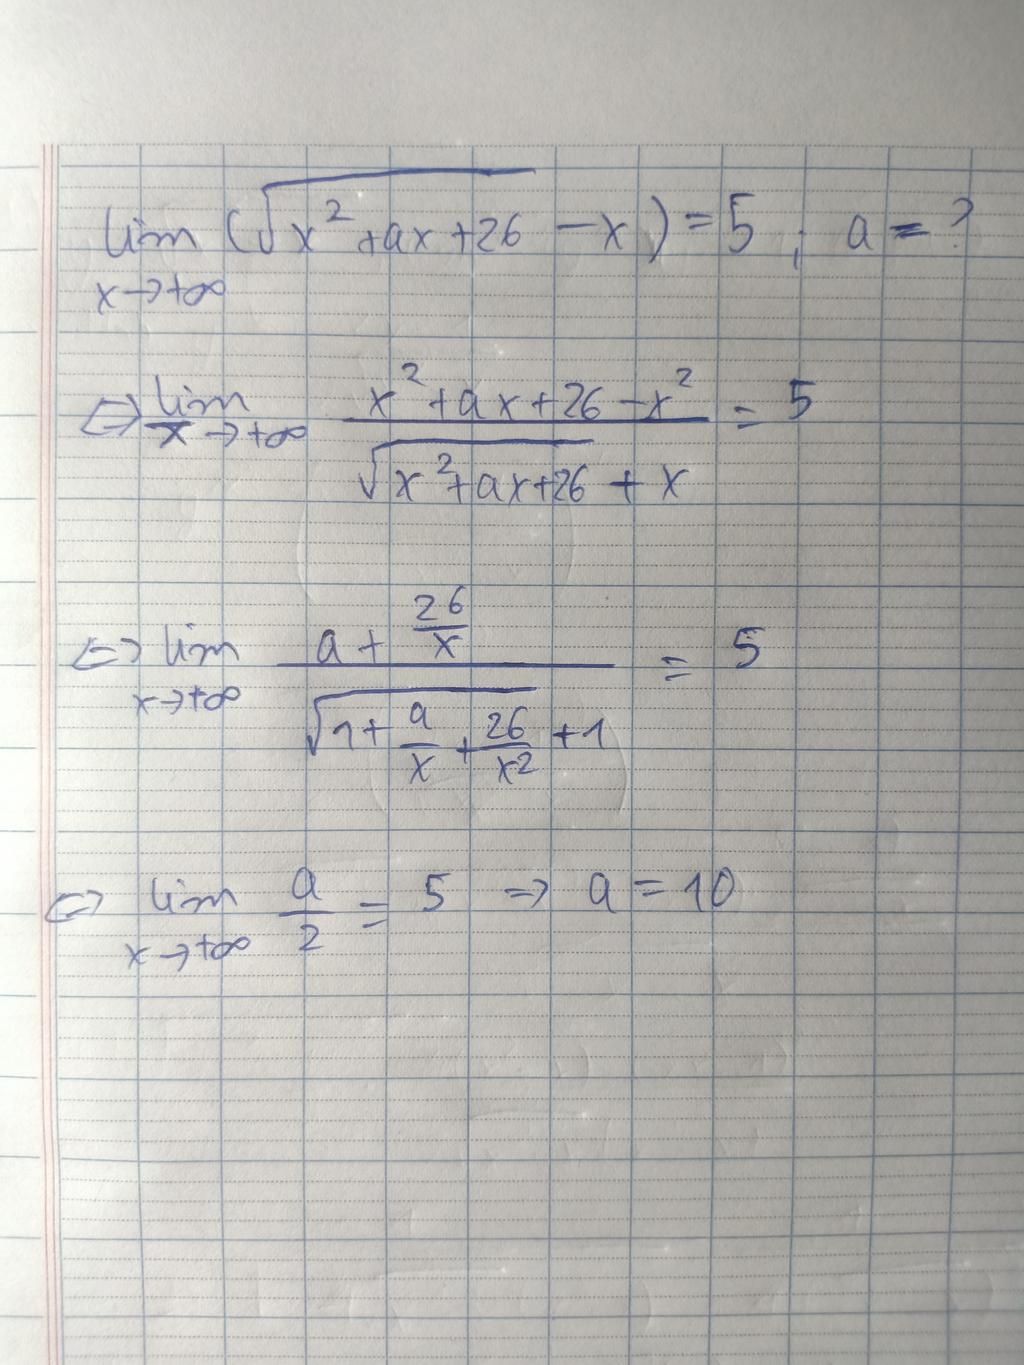 lim (√(x² + ax + 26) − x) = 5 ; a = ?
x → +∞
⇔ lim (x² + ax + 26 − x²) / (√(x² + ax + 26) + x) = 5
x → +∞
⇔ lim (a + 26/x) / (√(1 + a/x + 26/x²) + 1) = 5
x → +∞
⇔ lim a/2 = 5 ⇒ a = 10
x → +∞